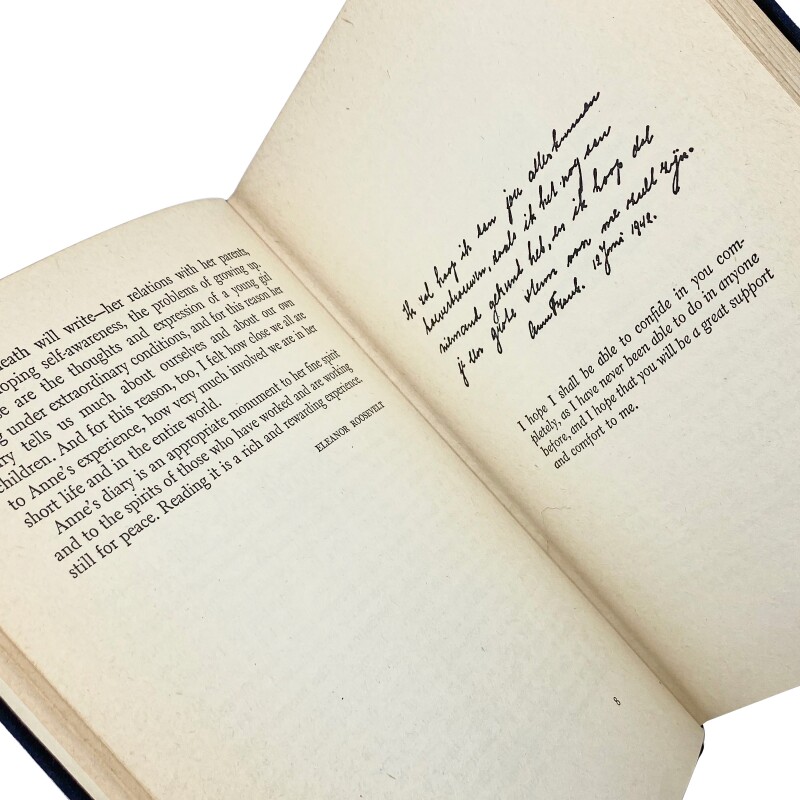 eath will write—her relations with her parents,
oping self-awareness, the problems of growing up.
e are the thoughts and expression of a young girl
g under extraordinary conditions, and for this reason her
ry tells us much about ourselves and about our own
children. And for this reason, too, I felt how close we all are
to Anne's experience, how very much involved we are in her
short life and in the entire world.
Anne's diary is an appropriate monument to her fine spirit
and to the spirits of those who have worked and are working
still for peace. Reading it is a rich and rewarding experience.
ELEANOR ROOSEVELT
8
Ik zal hoop ik aan jou alles kunnen
toevertrouwen, zoals ik het nog aan
niemand gekund heb, en ik hoop dat
je een steun van me zult zijn.
Anne Frank. 12 Juni 1942.
I hope I shall be able to confide in you com-
pletely, as I have never been able to do in anyone
before, and I hope that you will be a great support
and comfort to me.